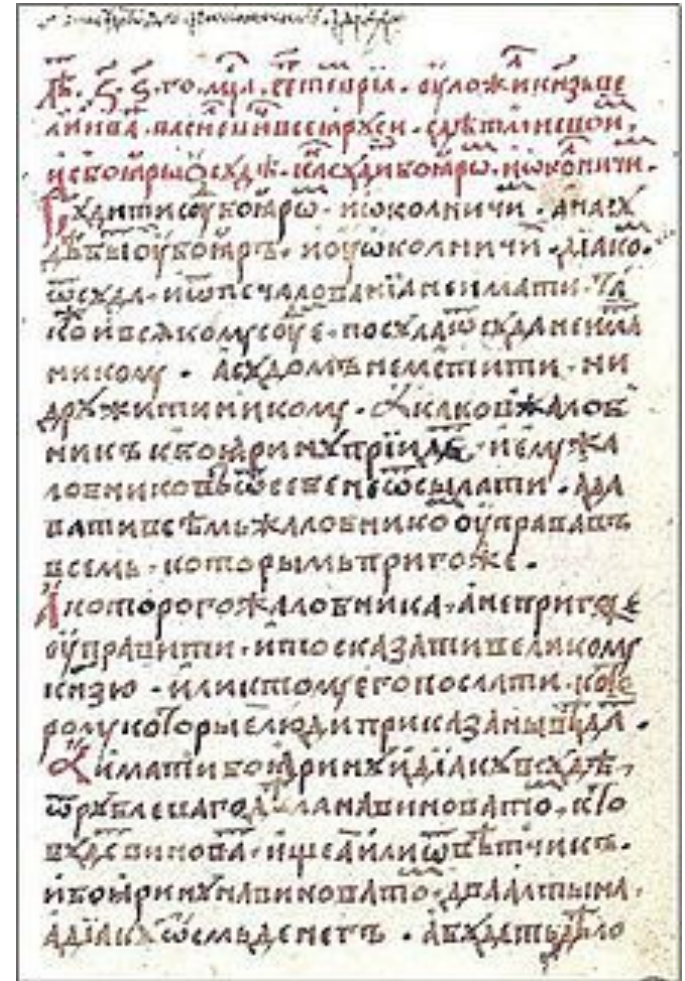 лѣ. ҂з. s. го. мц҃а. септевріа. оуложи кнѧзь ве
ликїи ива. василевичь всеа руси. с дѣтми свои.
и с боꙗры о судѣ. ка суди боꙗро. и ѡколничи.
Судити су боꙗро. и ѡколничи. а на су
дѣ быти оу боꙗръ. и оу ѡколничи. дїако.
ѿ суда. и ѿ печалованїа не имати. та
ко и всякому судїе. посула ѿ суда не има
никому. а судомъ не мстити. ни
дружити никому. А како жалоб
никъ к боꙗрину прїиде. и ему жа
лобниковъ ѿ себе не ѿсылати. а да
вати всѣмь жалобнико оуправавъ
всемь. которымь пригоже.
А которого жалобника. а не пригоже
оуправити. и то сказати великому
кнѧзю. или к тому его послати. кото
рому которые люди приказаны вѣда.
А имати боꙗрину и дїаку в судѣ,
ѿ рублеваго дѣла на виновато. кто
буде винова. ищеа или ѿвѣтчикъ.
и боꙗрину на виновато. два алтына.
а дїаку ѡсмь денегъ. а будеть дѣло